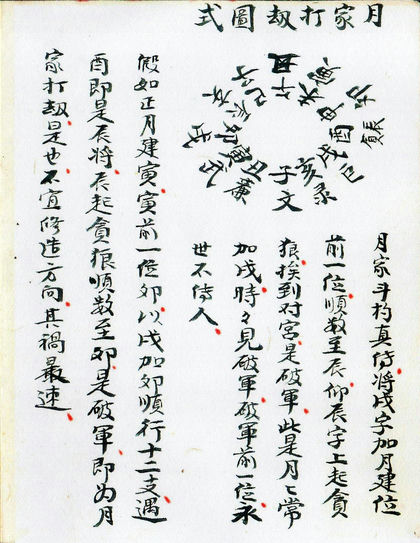 月家打劫圖式
月家斗杓真侍將戌字加月建位
前一位順數至辰仰辰字上起貪
狼挨到对宮是破軍此是月々常
加戌時々見破軍破軍前一位永
世不侍人
假如正月建寅寅前一位卯以戌加卯順行十二支遇
酉即是辰將辰起貪狼順數至卯是破軍即为月
家打劫是也不宜修造方向其禍最速